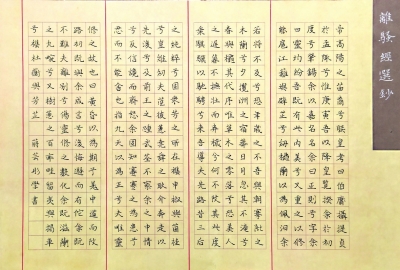 離騷經選鈔
帝高陽之苗裔兮朕皇考曰伯庸攝提貞
于孟陬兮惟庚寅吾以降皇覽揆余初
度兮肇錫余以嘉名名余曰正則兮字余
曰靈均紛吾既有此內美兮又重之以脩
能扈江離與辟芷兮紉秋蘭以為佩汩余
若將不及兮恐年歲之不吾與朝搴阰之
木蘭兮夕攬洲之宿莽日月忽其不淹兮
春與秋其代序唯草木之零落兮恐美人
之遲暮不撫壯而棄穢兮何不改其此度
乘騏驥以馳騁兮來吾導夫先路昔三后
之純粹兮固衆芳之所在雜申椒與菌桂
兮豈維紉夫蕙茝忽奔走以
先後兮及前王之踵武荃不察余之中情
兮反信讒而齌怒余固知謇謇之為患兮
忍而不能舍也指九天以為正兮夫唯靈
脩之故也曰黃昏以為期兮羌中道而改
路初既與余成言兮後悔遁而有他余既
不難夫離別兮傷靈脩之數化余既滋蘭
之九畹兮又樹蕙之百畝畦留夷與揭車
兮雜杜蘅與芳芷 芸彤學書